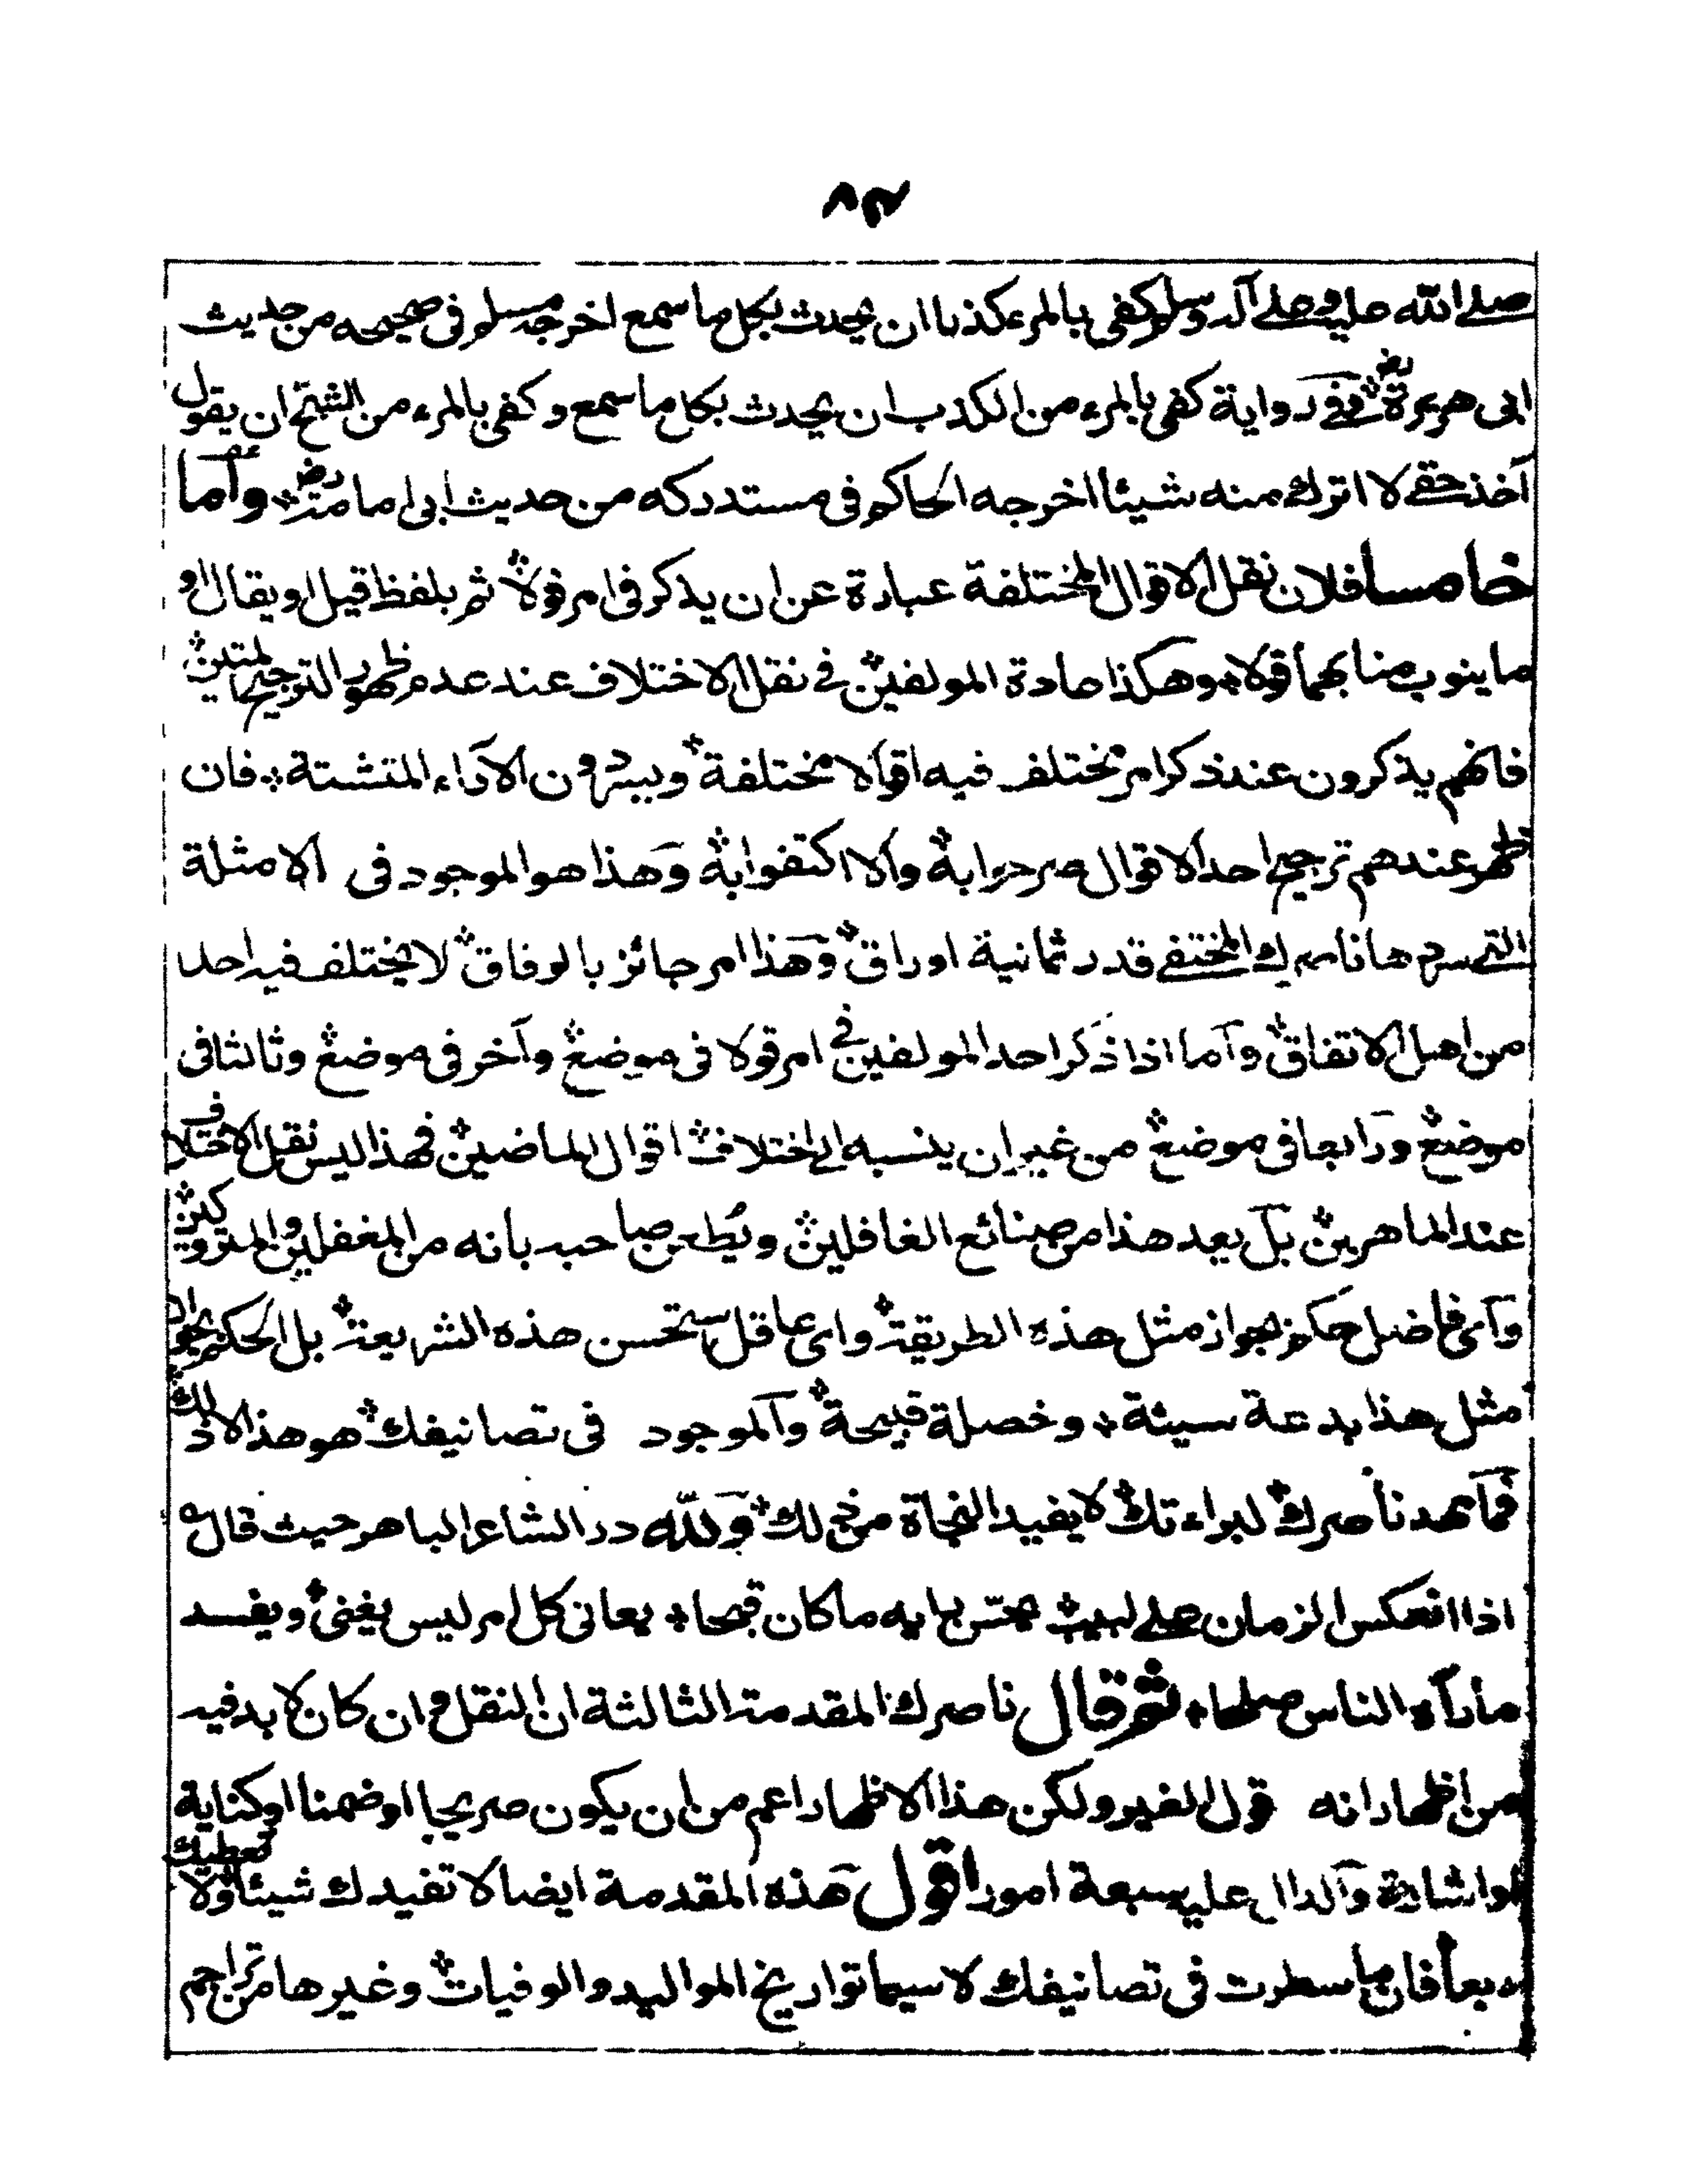 ٨٣
صلى الله عليه وعلى آله وسلم كفى بالمرء كذبا ان يحدث بكل ما سمع اخرجه مسلم فى صحيحه من حديث
ابى هريرة رض وفى رواية كفى بالمرء من الكذب ان يحدث بكل ما سمع وكفى بالمرء من الشح ان يقول
آخذ حقى لا اترك منه شيئا اخرجه الحاكم فى مستدركه من حديث ابى امامة رض وأما
خامسا فلان نقل الاقوال المختلفة عبارة عن ان يذكر فى امر قولا ثم بلفظ قيل او يقال او
ما ينوب منابهما قولا وهكذا عادة المولفين فى نقل الاختلاف عند عدم ظهور الترجيح المتين
فانهم يذكرون عند ذكر امر مختلف فيه اقوالا مختلفة ويسردون الآراء المتشتتة فان
ظهر عندهم ترجيح احد الاقوال صرحوا به والا اكتفوا به وهذا هو الموجود فى الامثلة
التى سردها ناصرك المختفى قدر ثمانية اوراق وهذا امر جائز بالوفاق لا يختلف فيه احد
من اهل الاتفاق وأما اذا ذكر احد المولفين فى امر قولا فى موضع وآخر فى موضع وثالثا فى
موضع ورابعا فى موضع من غير ان ينسبه الى اختلاف اقوال الماضين فهذا ليس نقل الاختلاف
عند الماهرين بل يعد هذا من صنائع الغافلين ويُطعن صاحبه بانه من المغفلين والمتروكين
وآى فاضل حكم بجواز مثل هذه الطريقة واى عاقل استحسن هذه الشريعة بل الحكم بجواز
مثل هذا بدعة سيئة وخصلة قبيحة والموجود فى تصانيفك هو هذا لا ذلك
فما مهد ناصرك لبراءتك لا يفيد النجاة من ذلك ولله در الشاعر الباهر حيث قال ه
اذا انعكس الزمان على لبيب يحسن رايه ما كان قبحا يعانى كل امر ليس يغنى ويفسد
ما رآه الناس صلحا ثم قال ناصرك المقدمة الثالثة ان النقل وان كان لا بد فيه
من اظهار انه قول الغير ولكن هذا الاظهار اعم من ان يكون صريحا او ضمنا او كناية
او اشارة والدال عليه سبعة امور اقول هذه المقدمة ايضا لا تفيدك شيئا ولا تعطيك
ربعا فان ما سطرت فى تصانيفك لا سيما تواريخ المواليد والوفيات وغيرها من تراجم